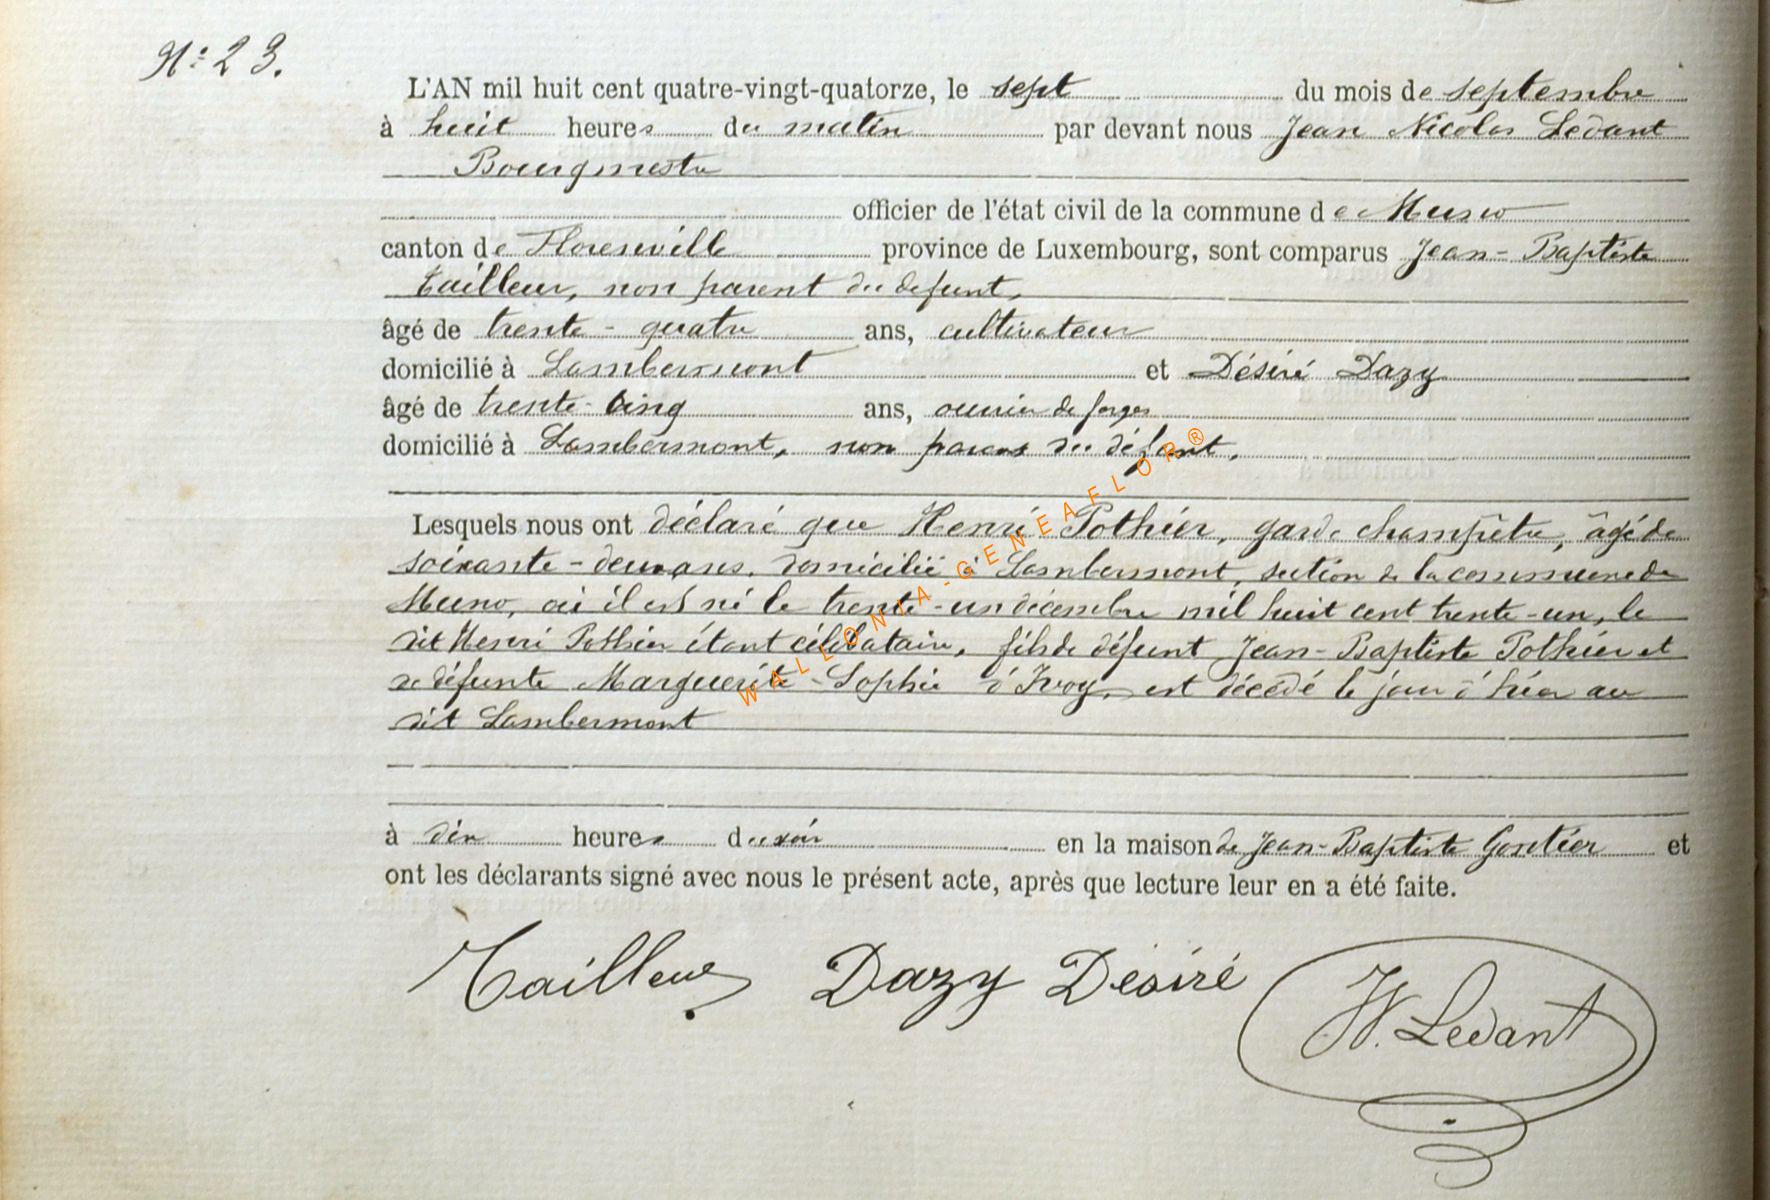 N° 23.
L'AN mil huit cent quatre-vingt-quatorze, le sept du mois de septembre
à huit heures du matin par devant nous Jean Nicolas Ledant
Bourgmestre
officier de l'état civil de la commune de Muno
canton de Florenville province de Luxembourg, sont comparus Jean-Baptiste
Tailleur, non parent du defunt,
âgé de trente-quatre ans, cultivateur
domicilié à Lambermont et Désiré Dazy
âgé de trente-cinq ans, ouvrier de forges
domicilié à Lambermont, non parent du défunt,
Lesquels nous ont déclaré que Henri Pothier, garde champêtre, âgé de
soixante-deux ans, domicilié à Lambermont, section de la commune de
Muno, où il est né le trente-un décembre mil huit cent trente-un, le
dit Henri Pothier étant célibataire, fils de défunt Jean-Baptiste Pothier et
de défunte Marguerite-Sophie d'Ivoy, est décédé le jour d'hier au
dit Lambermont
à dix heures du soir en la maison de Jean-Baptiste Gontier et
ont les déclarants signé avec nous le présent acte, après que lecture leur en a été faite.
Tailleur Dazy Désiré JN. Ledant
WALLONIA-GENEAFLOR®